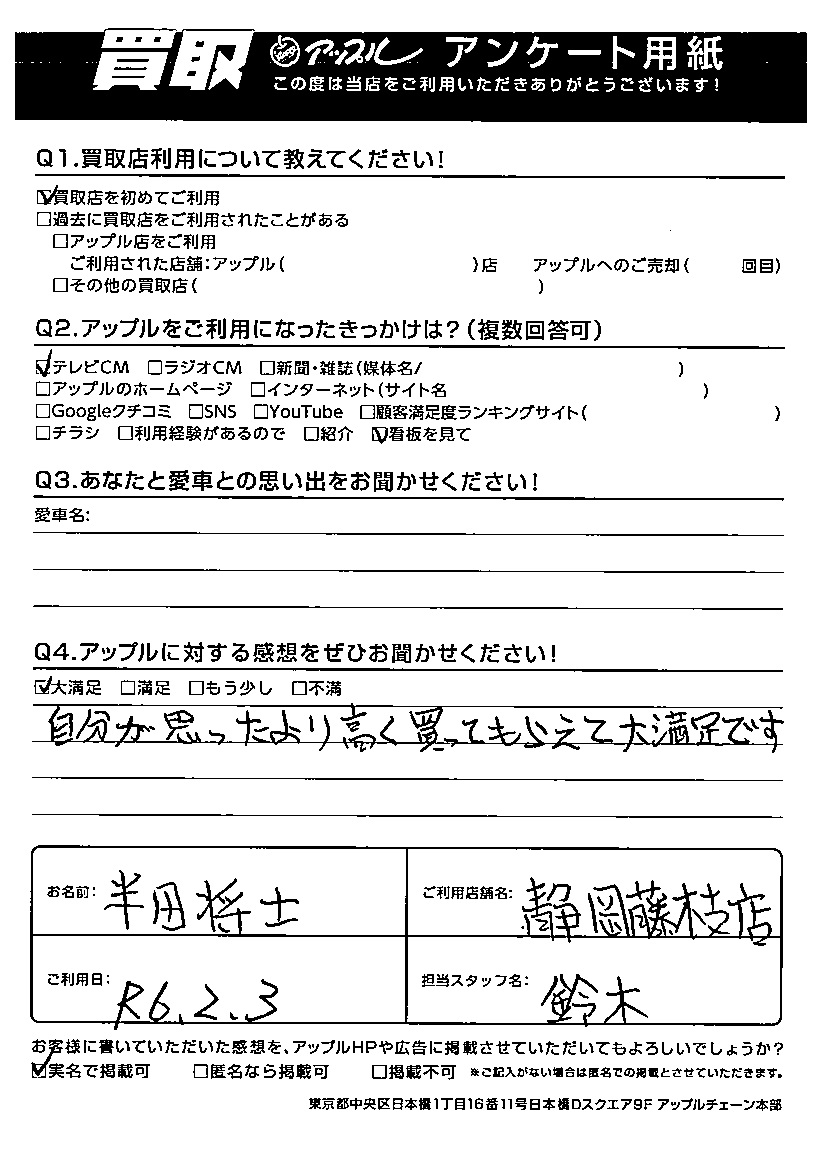 買取 アップル アンケート用紙
この度は当店をご利用いただきありがとうございます!
Q1.買取店利用について教えてください!
☑買取店を初めてご利用
□過去に買取店をご利用されたことがある
□アップル店をご利用
ご利用された店舗:アップル( )店 アップルへのご売却( 回目)
□その他の買取店( )
Q2.アップルをご利用になったきっかけは?(複数回答可)
☑テレビCM □ラジオCM □新聞・雑誌(媒体名/ )
□アップルのホームページ □インターネット(サイト名 )
□Googleクチコミ □SNS □YouTube □顧客満足度ランキングサイト( )
□チラシ □利用経験があるので □紹介 ☑看板を見て
Q3.あなたと愛車との思い出をお聞かせください!
愛車名:
Q4.アップルに対する感想をぜひお聞かせください!
☑大満足 □満足 □もう少し □不満
自分が思ったより高く買ってもらえて大満足です
お名前: 半田将士 ご利用店舗名: 静岡藤枝店
ご利用日: R6.2.3 担当スタッフ名: 鈴木
お客様に書いていただいた感想を、アップルHPや広告に掲載させていただいてもよろしいでしょうか?
☑実名で掲載可 □匿名なら掲載可 □掲載不可 ※ご記入がない場合は匿名での掲載とさせていただきます。
東京都中央区日本橋1丁目16番11号日本橋Dスクエア9F アップルチェーン本部